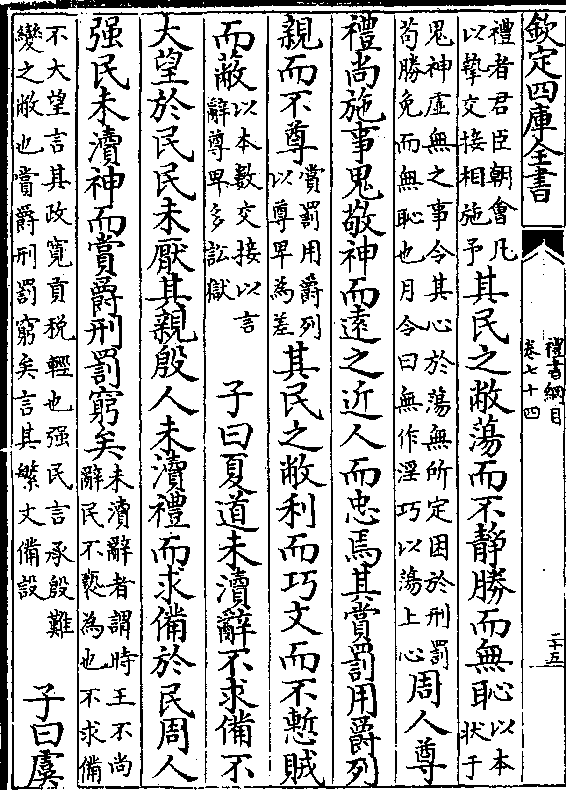 欽定四庫全書
禮書綱目
卷七十四
二十五
禮者君臣朝會凡
以摯交接相施予
其民之敝蕩而不靜勝而無恥
以本
狀于
鬼神虛無之事令其心於蕩無所定困於刑罰
苟勝免而無恥也月令曰無作淫巧以蕩上心
周人尊
禮尚施事鬼敬神而遠之近人而忠焉其賞罰用爵列
親而不尊
賞罰用爵列
以尊卑為差
其民之敝利而巧文而不慙賊
而蔽
以本數交接以言
辭尊卑多訟獄
子曰夏道未瀆辭不求備不
大望於民民未厭其親殷人未瀆禮而求備於民周人
强民未瀆神而賞爵刑罰窮矣
未瀆辭者謂時王不尚
辭民不褻為也不求備
不大望言其政寬貢稅輕也强民言承殷難
變之敝也賞爵刑罰窮矣言其繁文備設
子曰虞